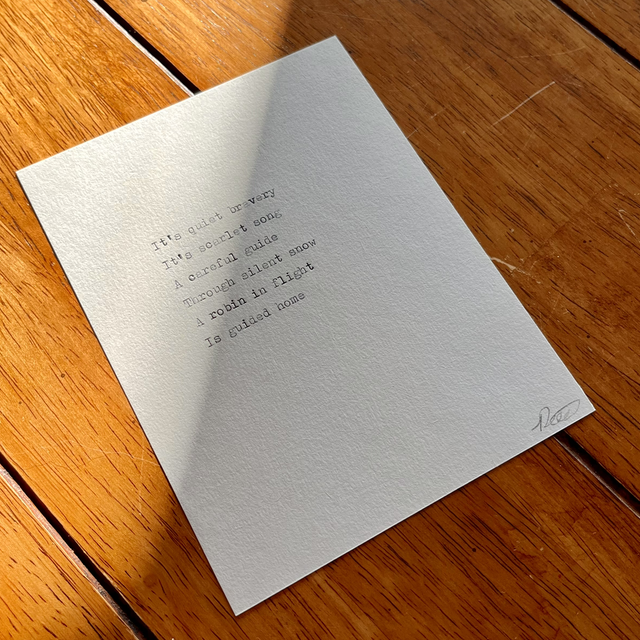 It's quiet bravery
It's scarlet song
A careful guide
Through silent snow
A robin in flight
Is guided home